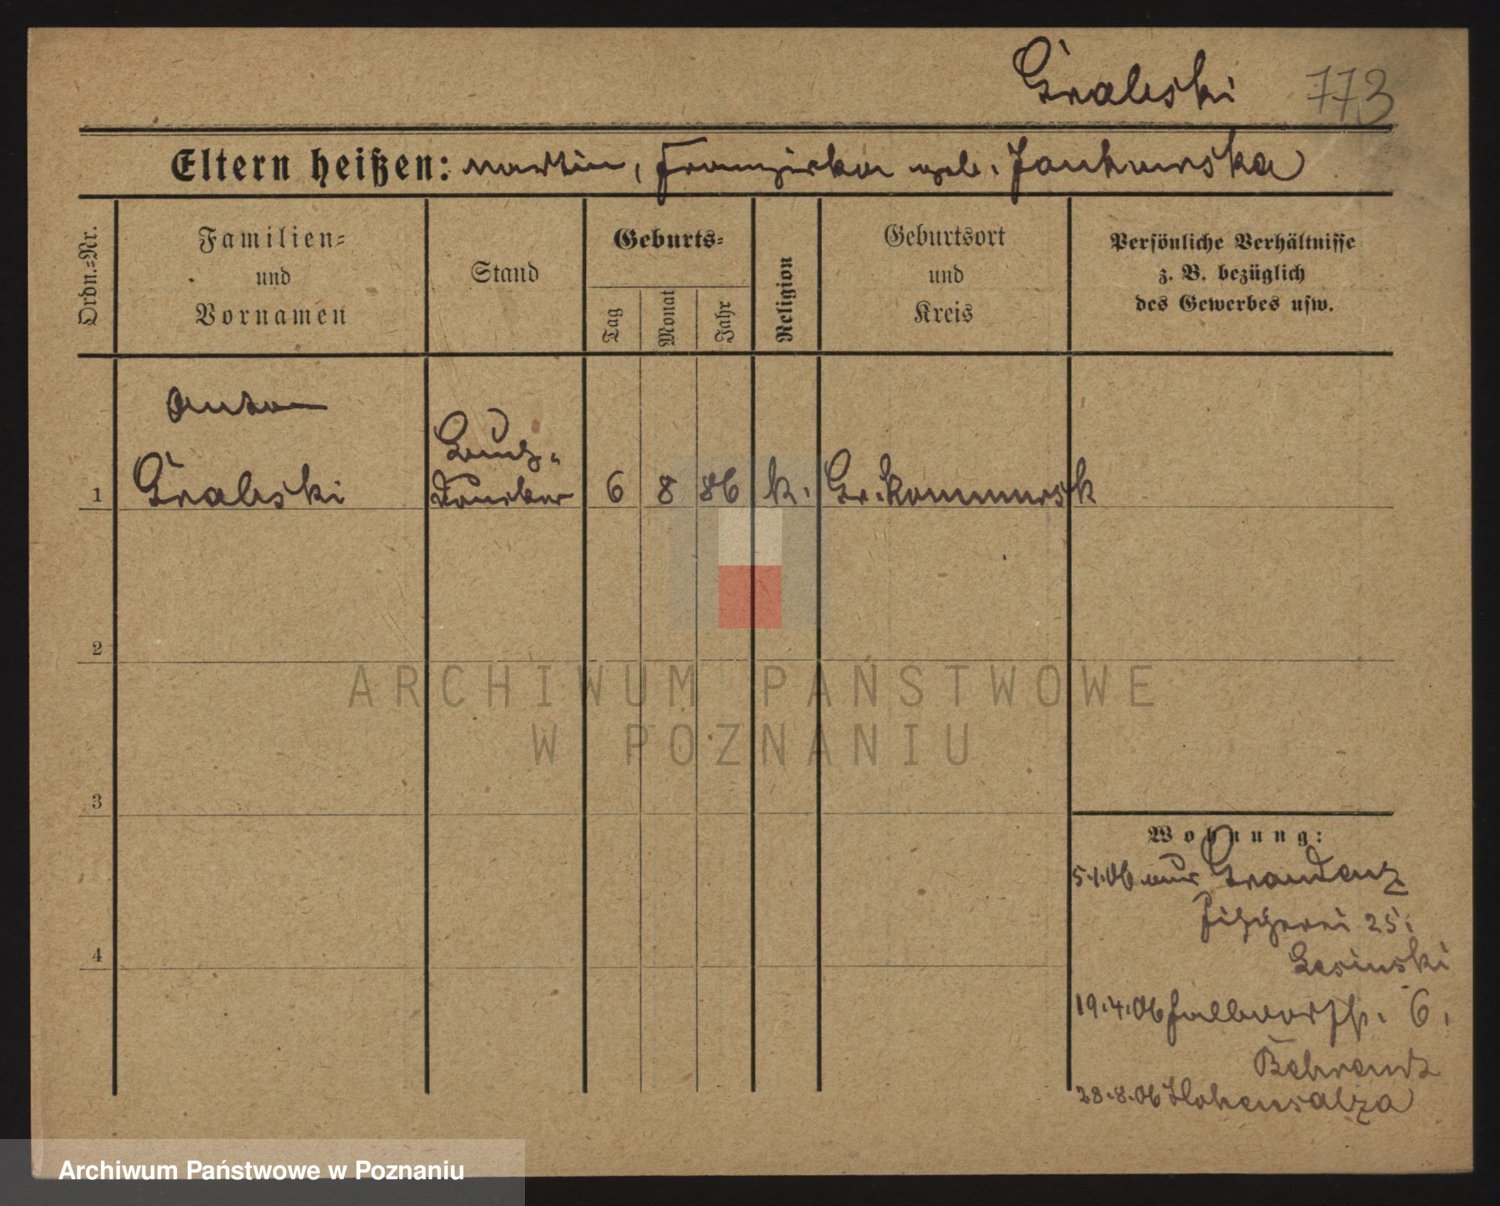 Grabski 773
Eltern heißen: Martin, Franziska geb. Jankowska
Ordn.-Nr.
Familien-
und
Vornamen
Stand
Geburts-
Tag
Monat
Jahr
Religion
Geburtsort
und
Kreis
Persönliche Verhältnisse
z. B. bezüglich
des Gewerbes usw.
Anton
1 Grabski
6 8 86 k.
2
3
4
Wohnung:
5.1.06 Graudenz
25.
Lesinski
19.4.06 6.
Behrendt
28.8.06 Hohensalza
ARCHIWUM PAŃSTWOWE
W POZNANIU
Archiwum Państwowe w Poznaniu